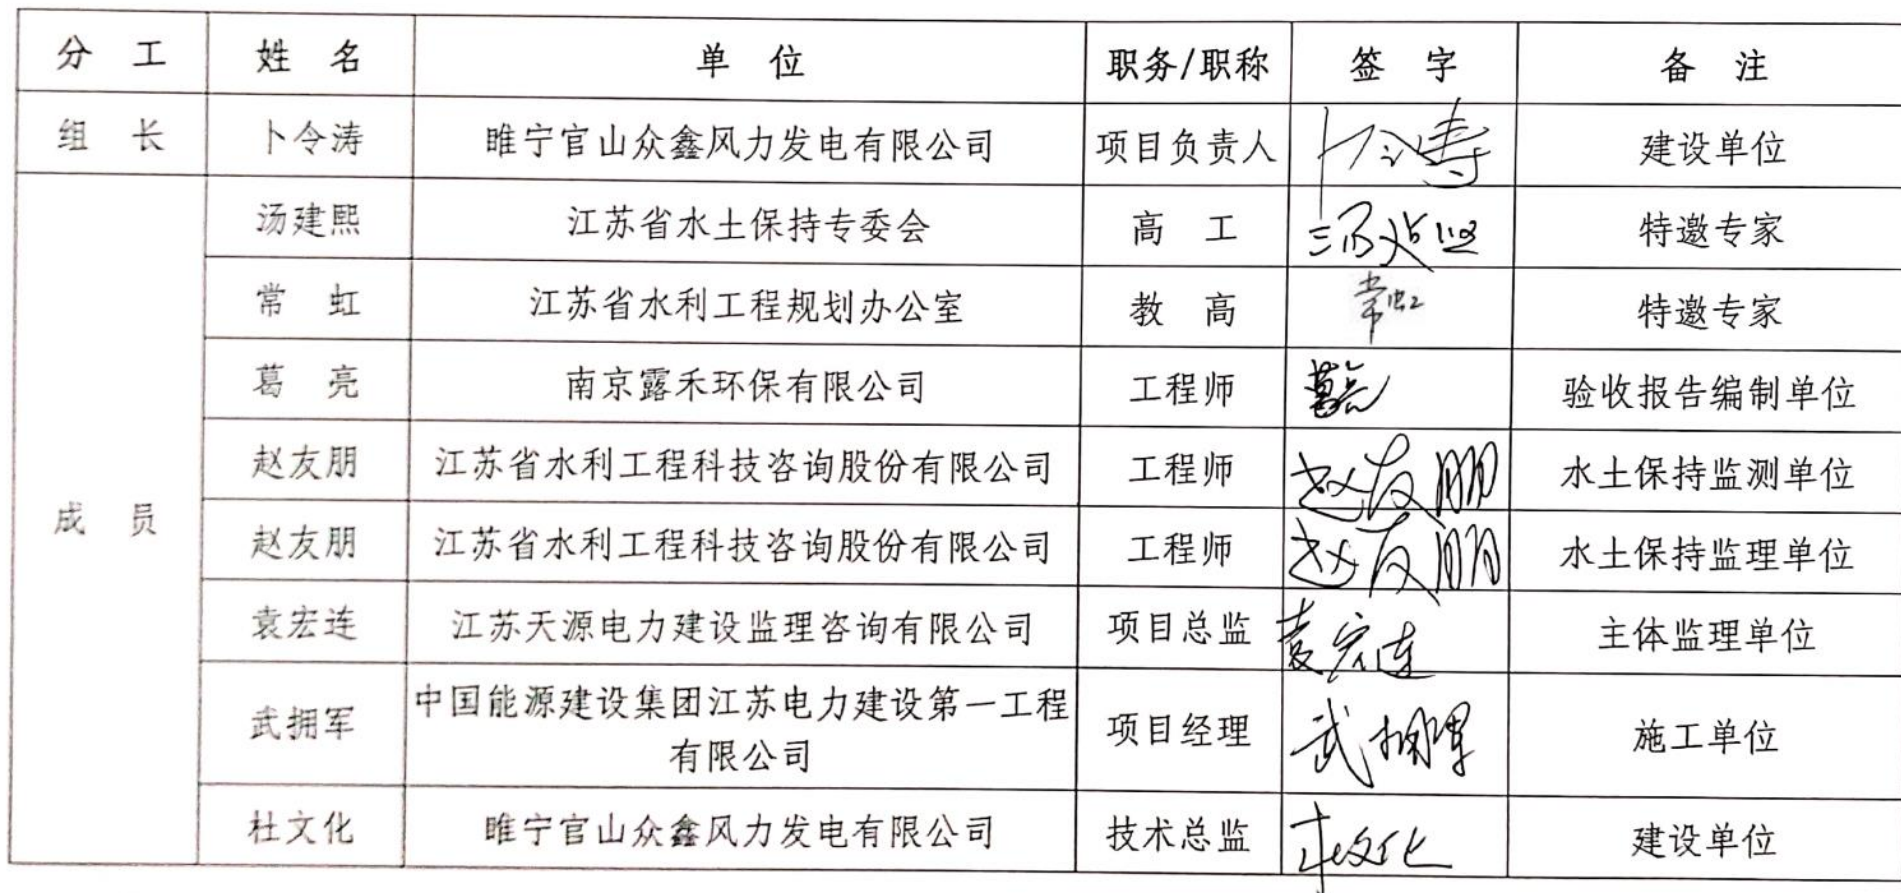 分 工 姓 名 单 位 职务/职称 签 字 备 注
组 长 卜令涛 睢宁官山众鑫风力发电有限公司 项目负责人 卜令涛 建设单位
汤建熙 江苏省水土保持专委会 高 工 特邀专家
常 虹 江苏省水利工程规划办公室 教 高 常虹 特邀专家
葛 亮 南京露禾环保有限公司 工程师 葛亮 验收报告编制单位
赵友朋 江苏省水利工程科技咨询股份有限公司 工程师 赵友朋 水土保持监测单位
成 员 赵友朋 江苏省水利工程科技咨询股份有限公司 工程师 赵友朋 水土保持监理单位
袁宏连 江苏天源电力建设监理咨询有限公司 项目总监 袁宏连 主体监理单位
武拥军 中国能源建设集团江苏电力建设第一工程 项目经理 武拥军 施工单位
有限公司
杜文化 睢宁官山众鑫风力发电有限公司 技术总监 杜文化 建设单位